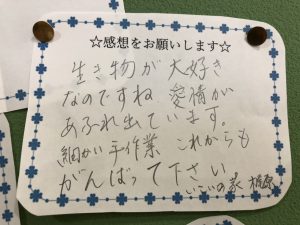 ☆感想をお願いします☆
生き物が大好き
なのですね 愛情が
あふれ出ています。
細かい手作業 これからも
がんばって下さい
いこいの家